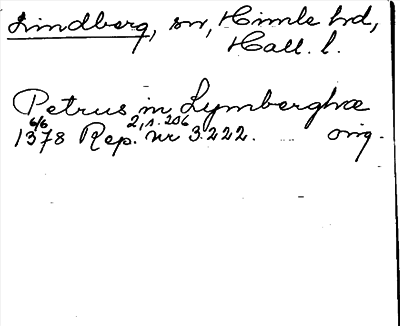 Lindberg, sn, Himle hd,
Hall. l.
Petrus in Lymberghæ
6/6
1378 Rep. 2, s. 206 nr 3222. orig.